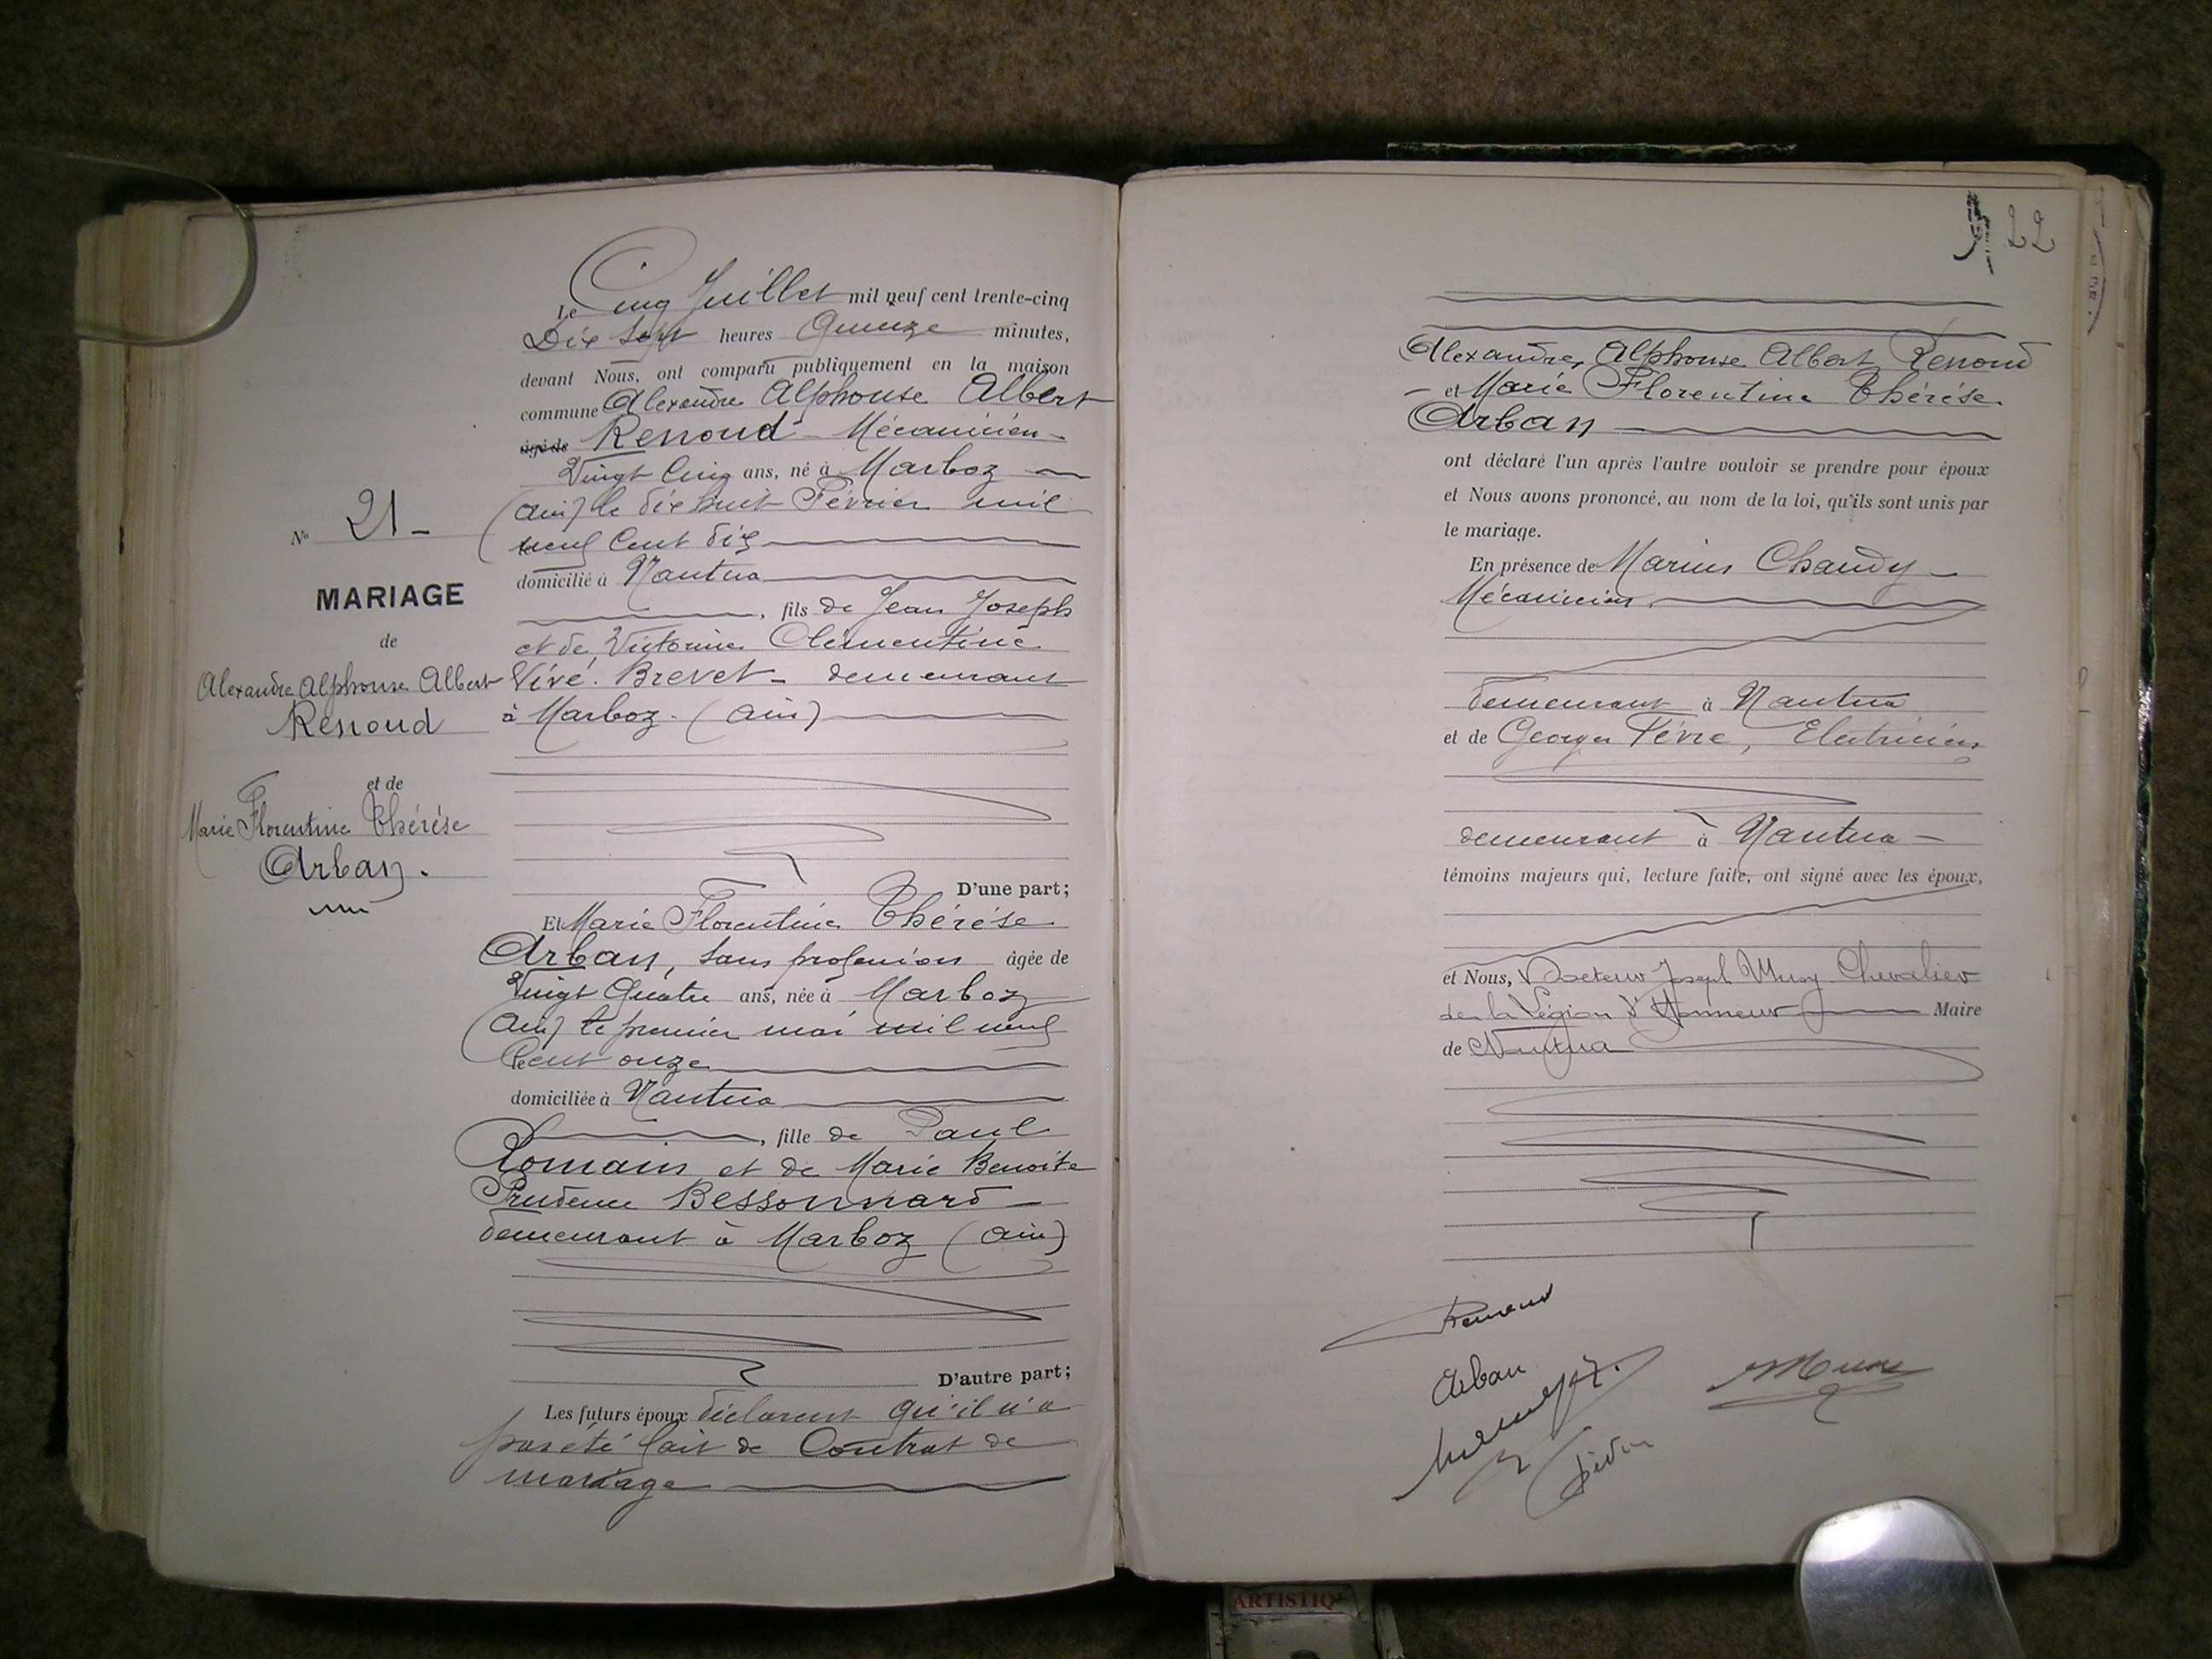 N° 21 -
MARIAGE
de
Alexandre Alphonse Albert
Renoud
et de
Marie Florentine Thérése
Arban.
Le Cinq Juillet mil neuf cent trente-cinq
Dix sept heures Quinze minutes,
devant Nous, ont comparu publiquement en la maison
commune Alexandre Alphonse Albert
âgé de Renoud - Mécanicien -
Vingt Cinq ans, né à Marboz
(Ain) le dix huit Février mil
neuf Cent dix
domicilié à Nantua
, fils de Jean Joseph
et de Victorine Clémentine
Brevet - demeurant
à Marboz. (Ain)
D'une part;
Et Marie Florentine Thérése
Arban, sans profession âgée de
Vingt Quatre ans, née à Marboz
(Ain) le premier mai mil neuf
Cent onze
domiciliée à Nantua
, fille de Paul
Romain et de Marie Benoite
Prudence Bessonnard -
demeurant à Marboz (Ain)
D'autre part;
Les futurs époux déclarent qu'il n'a
pas été fait de Contrat de
mariage
22
Alexandre, Alphonse Albert Renoud
- et Marie Florentine Thérése.
Arban
ont déclaré l'un après l'autre vouloir se prendre pour époux
et Nous avons prononcé, au nom de la loi, qu'ils sont unis par
le mariage.
En présence de Marius Chaudy -
Mécanicien,
demeurant à Nantua
et de Georges Févre, Electricien
demeurant à Nantua -
témoins majeurs qui, lecture faite, ont signé avec les époux,
et Nous, Docteur Joseph Musy Chevalier
de la Légion d'Honneur Maire
de Nantua
Renoud
Arban
Musy
ARTISTIQ